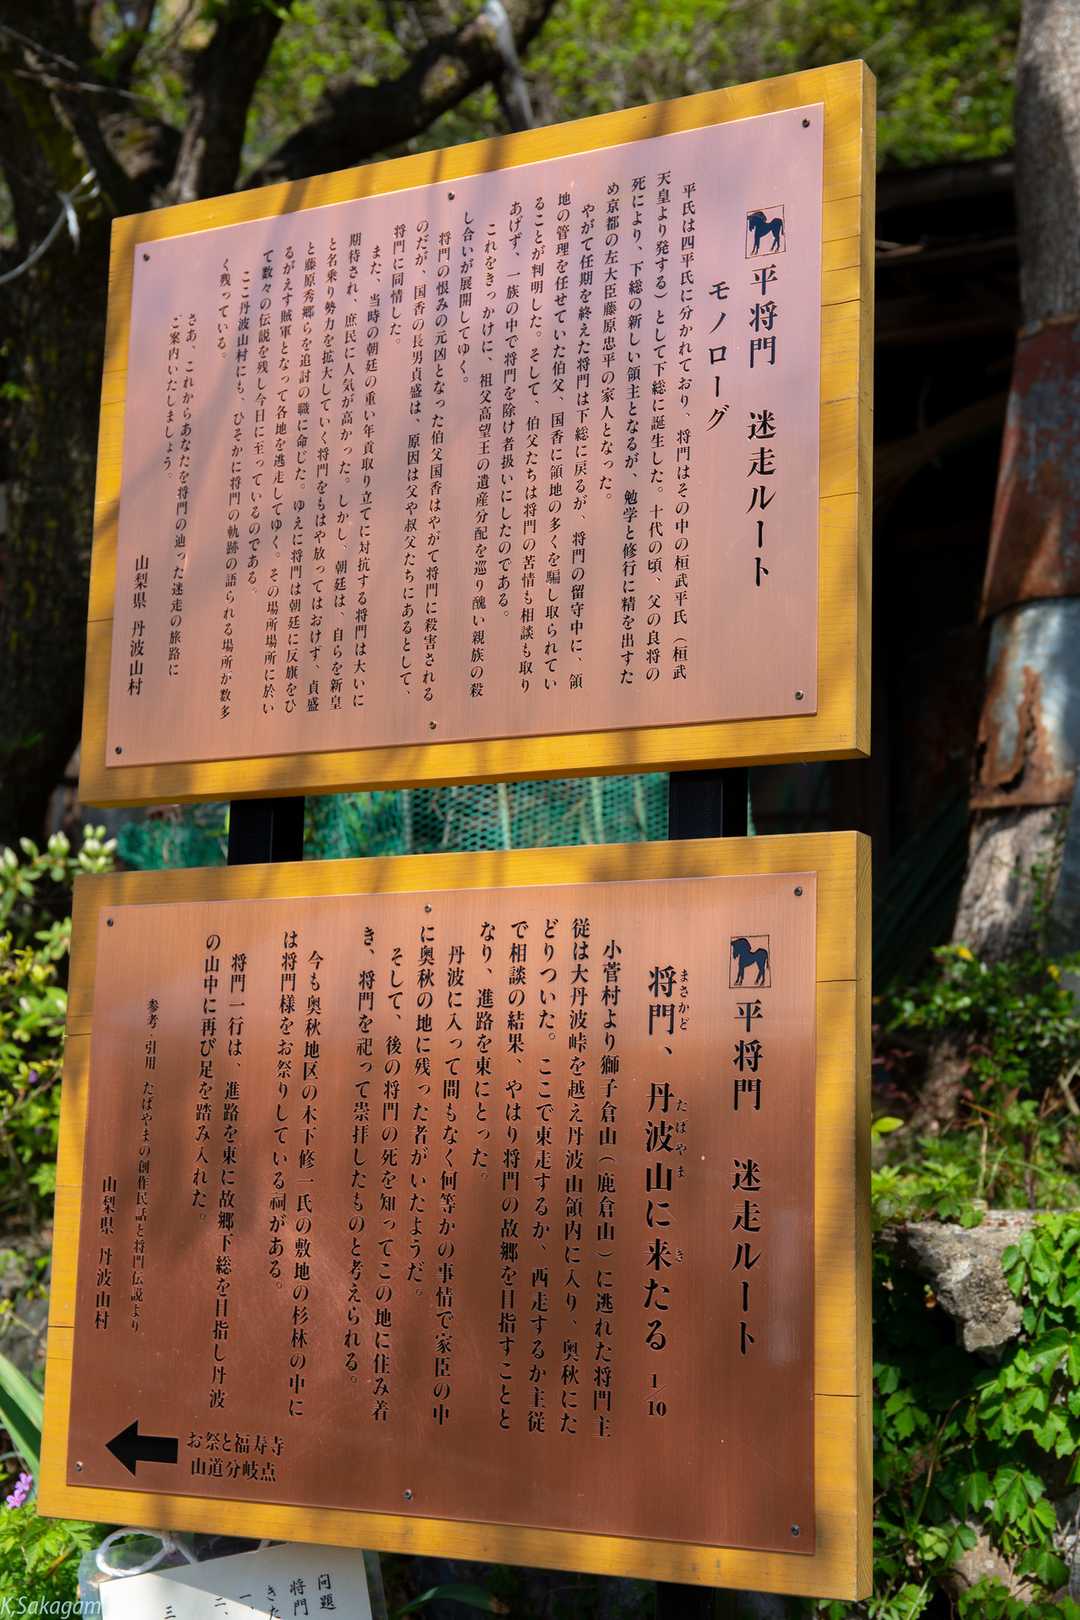 平将門　迷走ルート
モノローグ
平氏は四平氏に分かれており、将門はその中の桓武平氏（桓武
天皇より発する）として下総に誕生した。十代の頃、父の良将の
死により、下総の新しい領主となるが、勉学と修行に精を出すた
め京都の左大臣藤原忠平の家人となった。
やがて任期を終えた将門は下総に戻るが、将門の留守中に、領
地の管理を任せていた伯父、国香に領地の多くを騙し取られてい
ることが判明した。そして、伯父たちは将門の苦情も相談も取り
あげず、一族の中で将門を除け者扱いにしたのである。
これをきっかけに、祖父高望王の遺産分配を巡り醜い親族の殺
し合いが展開してゆく。
将門の恨みの元凶となった伯父国香はやがて将門に殺害される
のだが、国香の長男貞盛は、原因は父や叔父たちにあるとして、
将門に同情した。
また、当時の朝廷の重い年貢取り立てに対抗する将門は大いに
期待され、庶民に人気が高かった。しかし、朝廷は、自らを新皇
と名乗り勢力を拡大していく将門をもはや放ってはおけず、貞盛
と藤原秀郷らを追討の職に命じた。ゆえに将門は朝廷に反旗をひ
るがえす賊軍となって各地を逃走してゆく。その場所場所に於い
て数々の伝説を残し今日に至っているのである。
ここ丹波山村にも、ひそかに将門の軌跡の語られる場所が数多
く残っている。
さあ、これからあなたを将門の辿った迷走の旅路に
ご案内いたしましょう。
山梨県 丹波山村
平将門　迷走ルート
将門、丹波山に来たる 1/10
まさかど
たばやま
き
小菅村より獅子倉山（鹿倉山）に逃れた将門主
従は大丹波峠を越え丹波山領内に入り、奥秋にた
どりついた。ここで東走するか、西走するか主従
で相談の結果、やはり将門の故郷を目指すことと
なり、進路を東にとった。
丹波に入って間もなく何等かの事情で家臣の中
に奥秋の地に残った者がいたようだ。
そして、後の将門の死を知ってこの地に住み着
き、将門を祀って崇拝したものと考えられる。
今も奥秋地区の木下修一氏の敷地の杉林の中に
は将門様をお祭りしている祠がある。
将門一行は、進路を東に故郷下総を目指し丹波
の山中に再び足を踏み入れた。
参考・引用 たばやまの創作民話と将門伝説より
山梨県 丹波山村
お祭と福寿寺
山道分岐点
問題
将門
きた
一、
二、
三
K,Sakagam